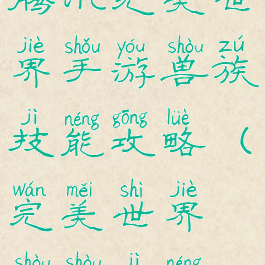 美世
jiè shǒu yóu shòu zú
界手游兽族
jì néng gōng lüè
技能攻略（
wán měi shì jiè
完美世界
shòu shòu jì néng